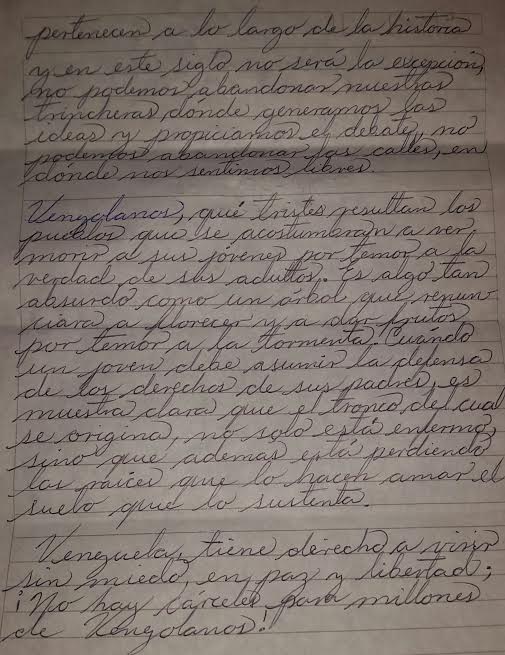 pertenecen a lo largo de la historia
y en este siglo no será la excepción,
no podemos abandonar nuestras
trincheras dónde generamos las
ideas y propiciamos el debate, no
podemos abandonar las calles, en
dónde nos sentimos libres.
Venezolanos, qué tristes resultan los
pueblos que se acostumbran a ver
morir a sus jóvenes por temor a la
verdad de sus adultos. Es algo tan
absurdo como un árbol que renun-
ciara a florecer y a dar frutos
por temor a la tormenta. Cuándo
un joven debe asumir la defensa
de los derechos de sus padres, es
muestra clara que el tronco del cual
se origina, no solo está enfermo,
sino que ademas está perdiendo
las raíces que lo hacen amar el
suelo que lo sustenta.
Venezuela, tiene derecho a vivir
sin miedo, en paz y libertad;
¡No hay cárceles para millones
de Venezolanos!